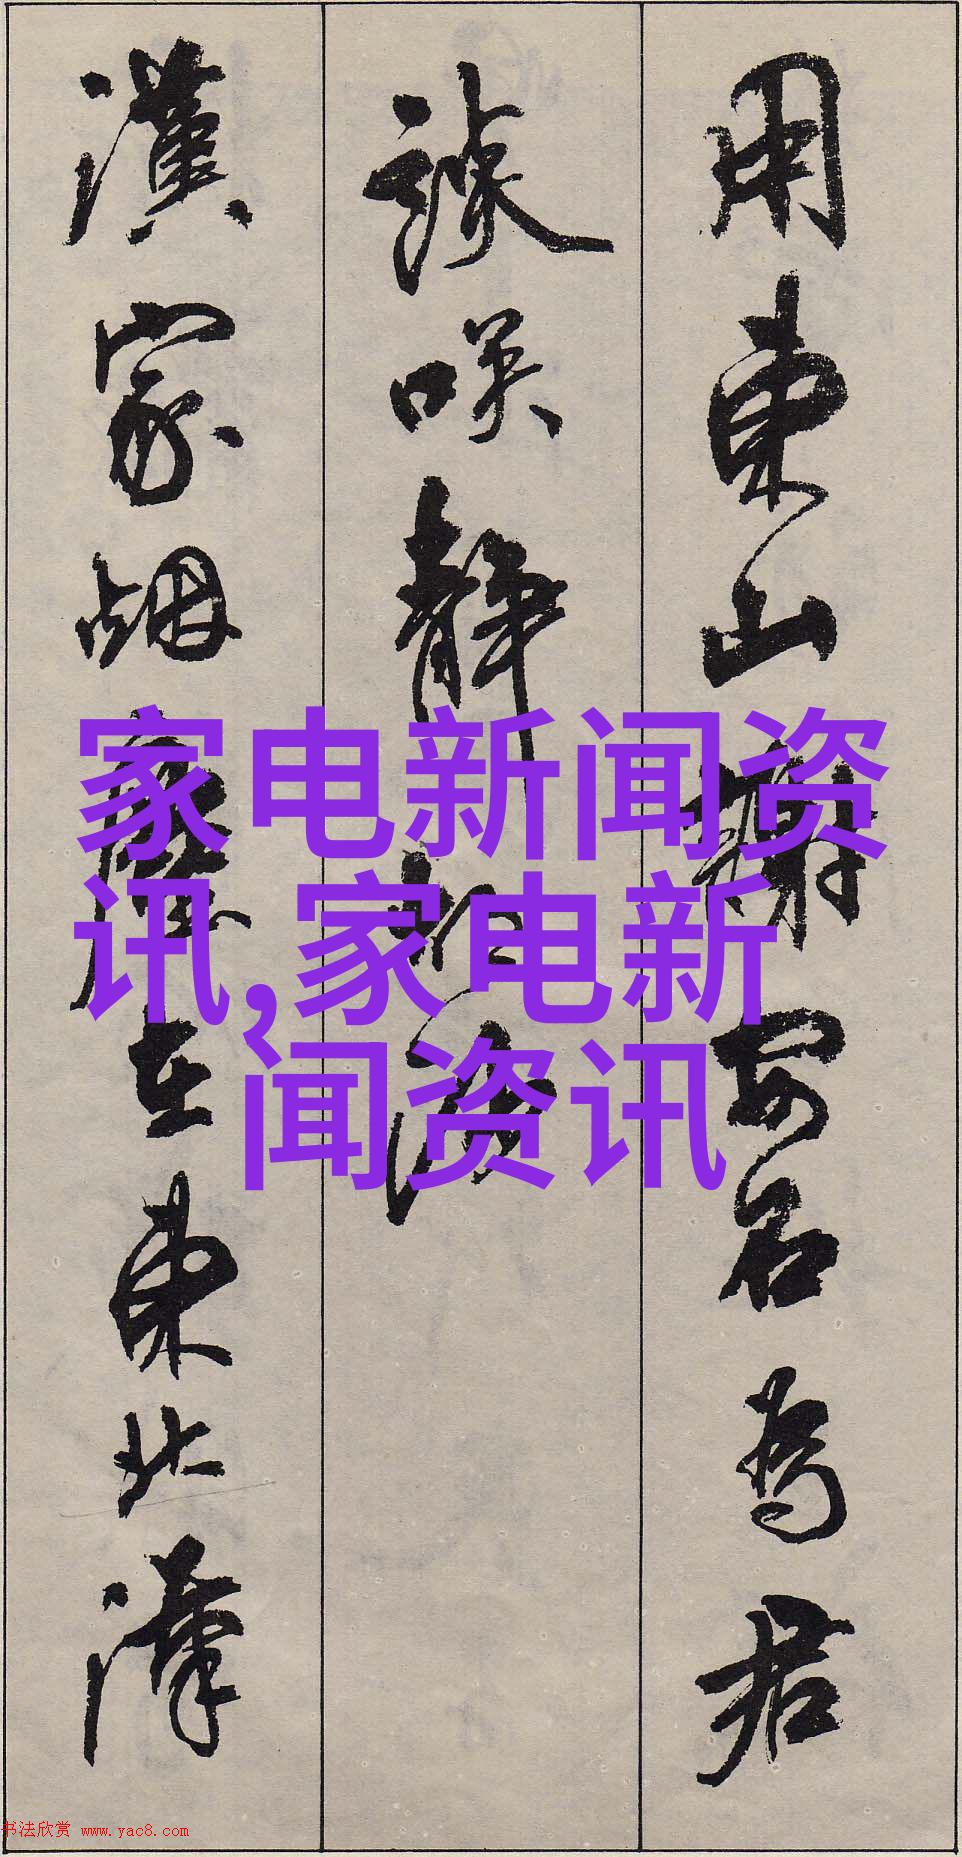 用東山謝安石為君
談咲静胡沙
漢家烟塵在東北漢
家电新闻资
讯,家电新
闻资讯
书法欣赏 www.yac8.com